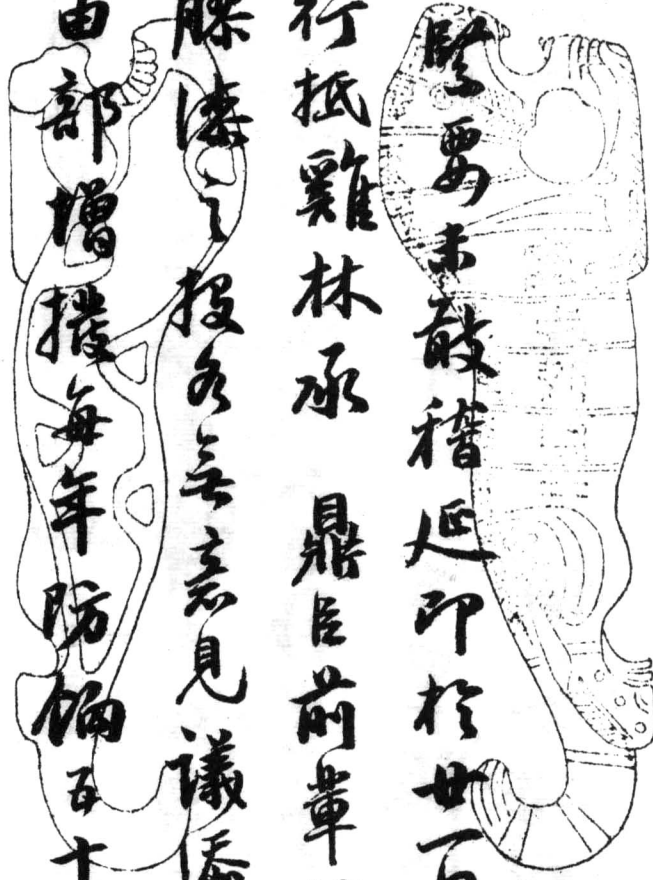 緊要未敢稽延即於廿一
行抵雞林承 鼎臣前輩
膠漆之投各無意見議添
由部增撥每年防餉五十